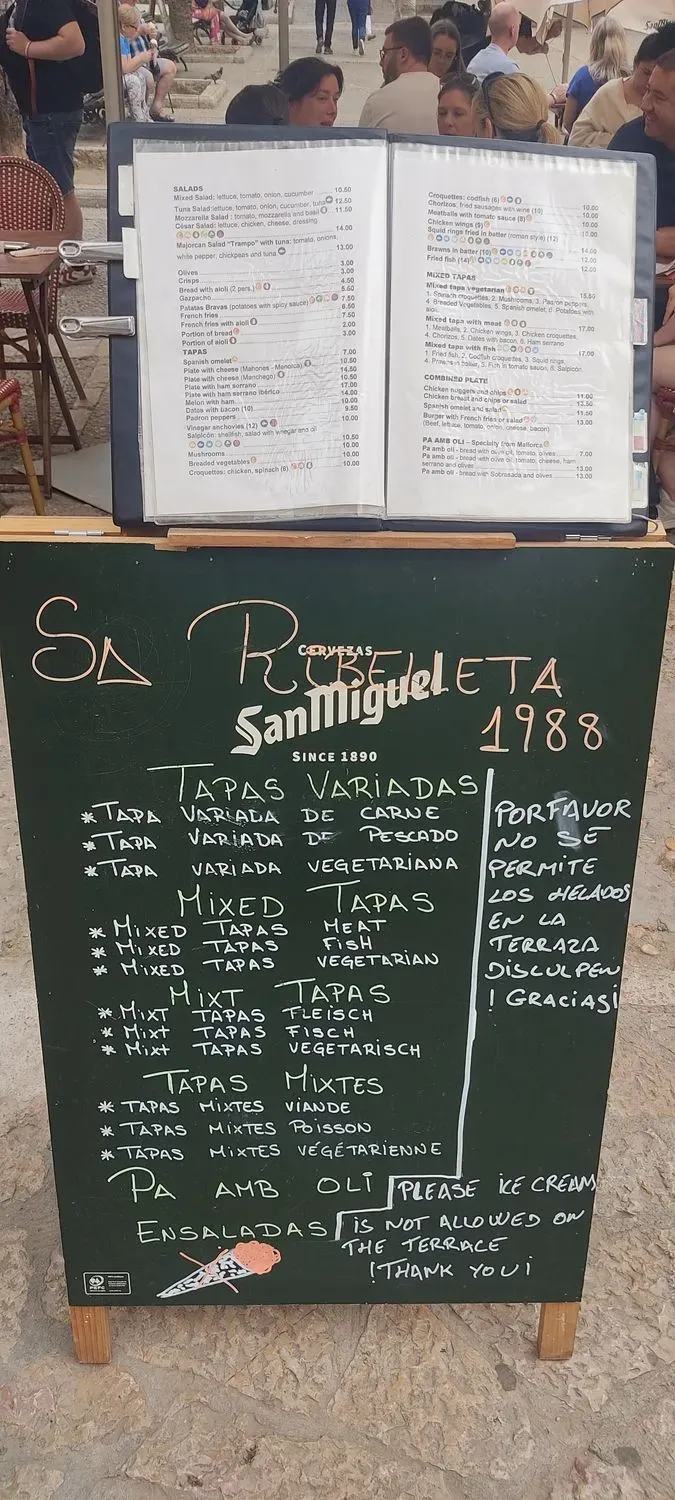 SanMiguel
SALADS
Mixed Salad: lettuce, tomato, onion, cucumber 10.50
Tuna Salad: lettuce, tomato, onion, cucumber, tuna 12.50
Mozzarella Salad : tomato, mozzarella and basil 11.50
César Salad: lettuce, chicken, cheese, dressing
14.00
Majorcan Salad "Trampo" with tuna: tomato, onions,
13.00
white pepper, chickpeas and tuna
Olives 3.00
Crisps 3.00
Bread with aioli (2 pers.) 4.50
Gazpacho
Patatas Bravas (potatoes with spicy sauce) 7.50
French fries 6.50
French fries with aioli 7.50
Portion of bread 2.00
Portion of aioli 3.00
TAPAS
Spanish omelet 7.00
Plate with cheese (Mahones - Menorca) 10.50
Plate with cheese (Manchego) 10.50
Plate with ham serrano 17.00
Plate with ham serrano ibérico 14.00
Melon with ham 10.00
Dates with bacon (10) 9.50
Padron peppers 10.00
Vinegar anchovies (12)
Salpicón: shellfish, salad with vinegar and oil
10.50
Mushrooms 10.00
Breaded vegetables 10.00
Croquettes: chicken, spinach (6) 10.00
Croquettes: codfish (6) 10.00
Chorizos: fried sausages with wine (10)
Meatballs with tomato sauce (8) 10.00
Chicken wings (9) 10.00
Squid rings fried in batter (roman style) (12)
14.00
Prawns in batter (10) 12.00
Fried fish (14) 12.00
MIXED TAPAS
Mixed tapa vegetarian 15.50
1. Spinach croquettes, 2. Mushrooms, 3. Padron peppers,
4. Breaded Vegetables, 5. Spanish omelet, 6. Potatoes with
aioli
Mixed tapa with meat 17.00
1. Meatballs, 2. Chicken wings, 3. Chicken croquettes,
4. Chorizos, 5. Dates with bacon, 6. Ham serrano
Mixed tapa with fish 17.00
1. Fried fish, 2. Codfish croquettes, 3. Squid rings,
4. Prawns in batter, 5. Fish in tomato sauce, 6. Salpicón
COMBINED PLATE
Chicken nuggets and chips 11.00
Chicken breast and chips or salad
Spanish omelet and salad 11.50
Burger with French fries or salad 13.00
(Beef, lettuce, tomato, onion, cheese, bacon)
PA AMB OLI – Specialty from Mallorca
Pa amb oli - bread with olive oil, tomato, olives 7.00
Pa amb oli - bread with olive oil, tomato, cheese, ham
serrano and olives 13.00
Pa amb oli - bread with Sobrasada and olives 13.00
SA RIBELLETA
CERVEZAS
SanMiguel
1988
SINCE 1890
TAPAS VARIADAS
* TAPA VARIADA DE CARNE
* TAPA VARIADA DE PESCADO
* TAPA VARIADA VEGETARIANA
MIXED TAPAS
* MIXED TAPAS MEAT
* MIXED TAPAS FISH
* MIXED TAPAS VEGETARIAN
MIXT TAPAS
* MIXT TAPAS FLEISCH
* MIXT TAPAS FISCH
* MIXT TAPAS VEGETARISCH
TAPAS MIXTES
* TAPAS MIXTES VIANDE
* TAPAS MIXTES POISSON
* TAPAS MIXTES VÉGÉTARIENNE
PA AMB OLI
ENSALADAS
POR FAVOR
NO SE
PERMITE
LOS HELADOS
EN LA
TERRAZA
DISCULPEN
! GRACIAS¡
PLEASE ICE CREAM
IS NOT ALLOWED ON
THE TERRACE
! THANK YOU ¡
PEFC